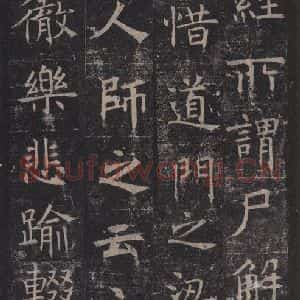 經所謂尸解
惜道門之
人師之云
徹樂悲踰輟
Shufawang.CN